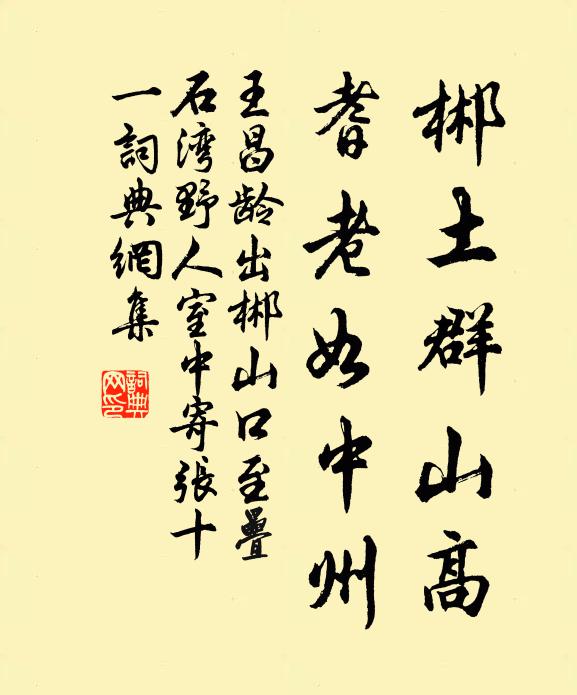 郴土群山高
耆老如中州
王昌龄出郴山口至疊
石湾野人室中寄張十
一詞典網集
詞典網印